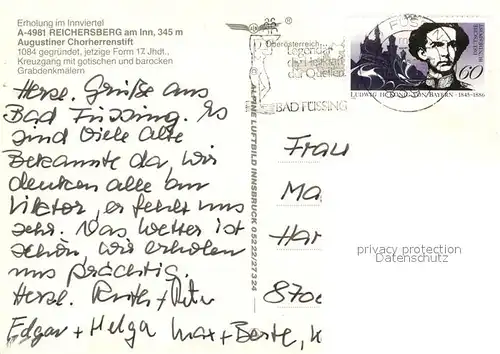 Erholung im Innviertel
A-4981 REICHERSBERG am Inn, 345 m
Augustiner Chorherrenstift
1084 gegründet, jetzige Form 17. Jhdt.,
Kreuzgang mit gotischen und barocken
Grabdenkmälern
Herzl. Grüße aus
Bad Füssing. Es
sind viele alte
Bekannte da, wir
denken alle an
Viktor, er fehlt uns
sehr. Das Wetter ist
schön, wir erholen
uns prächtig.
Herzl. Ruth + Peter
Edgar + Helga Max + Berte,
Oberösterreich
ALPINE LUFTBILD INNSBRUCK 05222/27324
Legendär
die Heilkraft
der Quellen
BAD FÜSSING
DEUTSCHE BUNDESPOST
60
LUDWIG II · KÖNIG VON BAYERN · 1845-1886
Frau
Ma
Har
870
privacy protection
Datenschutz